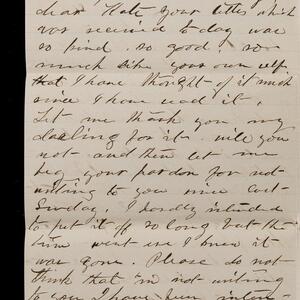 dear Kate your letter which
was received to day was
so kind. so good, so
much like your own self
that I have thought of it much
since I have read it.
Let me thank you my
darling for it. will you
not and then let me
beg your pardon for not
writing to you since last
Sunday, I hardly intended
to put it off so long but the
time went ere I knew it
was gone. Please do not
think that in not writing
to you I have been